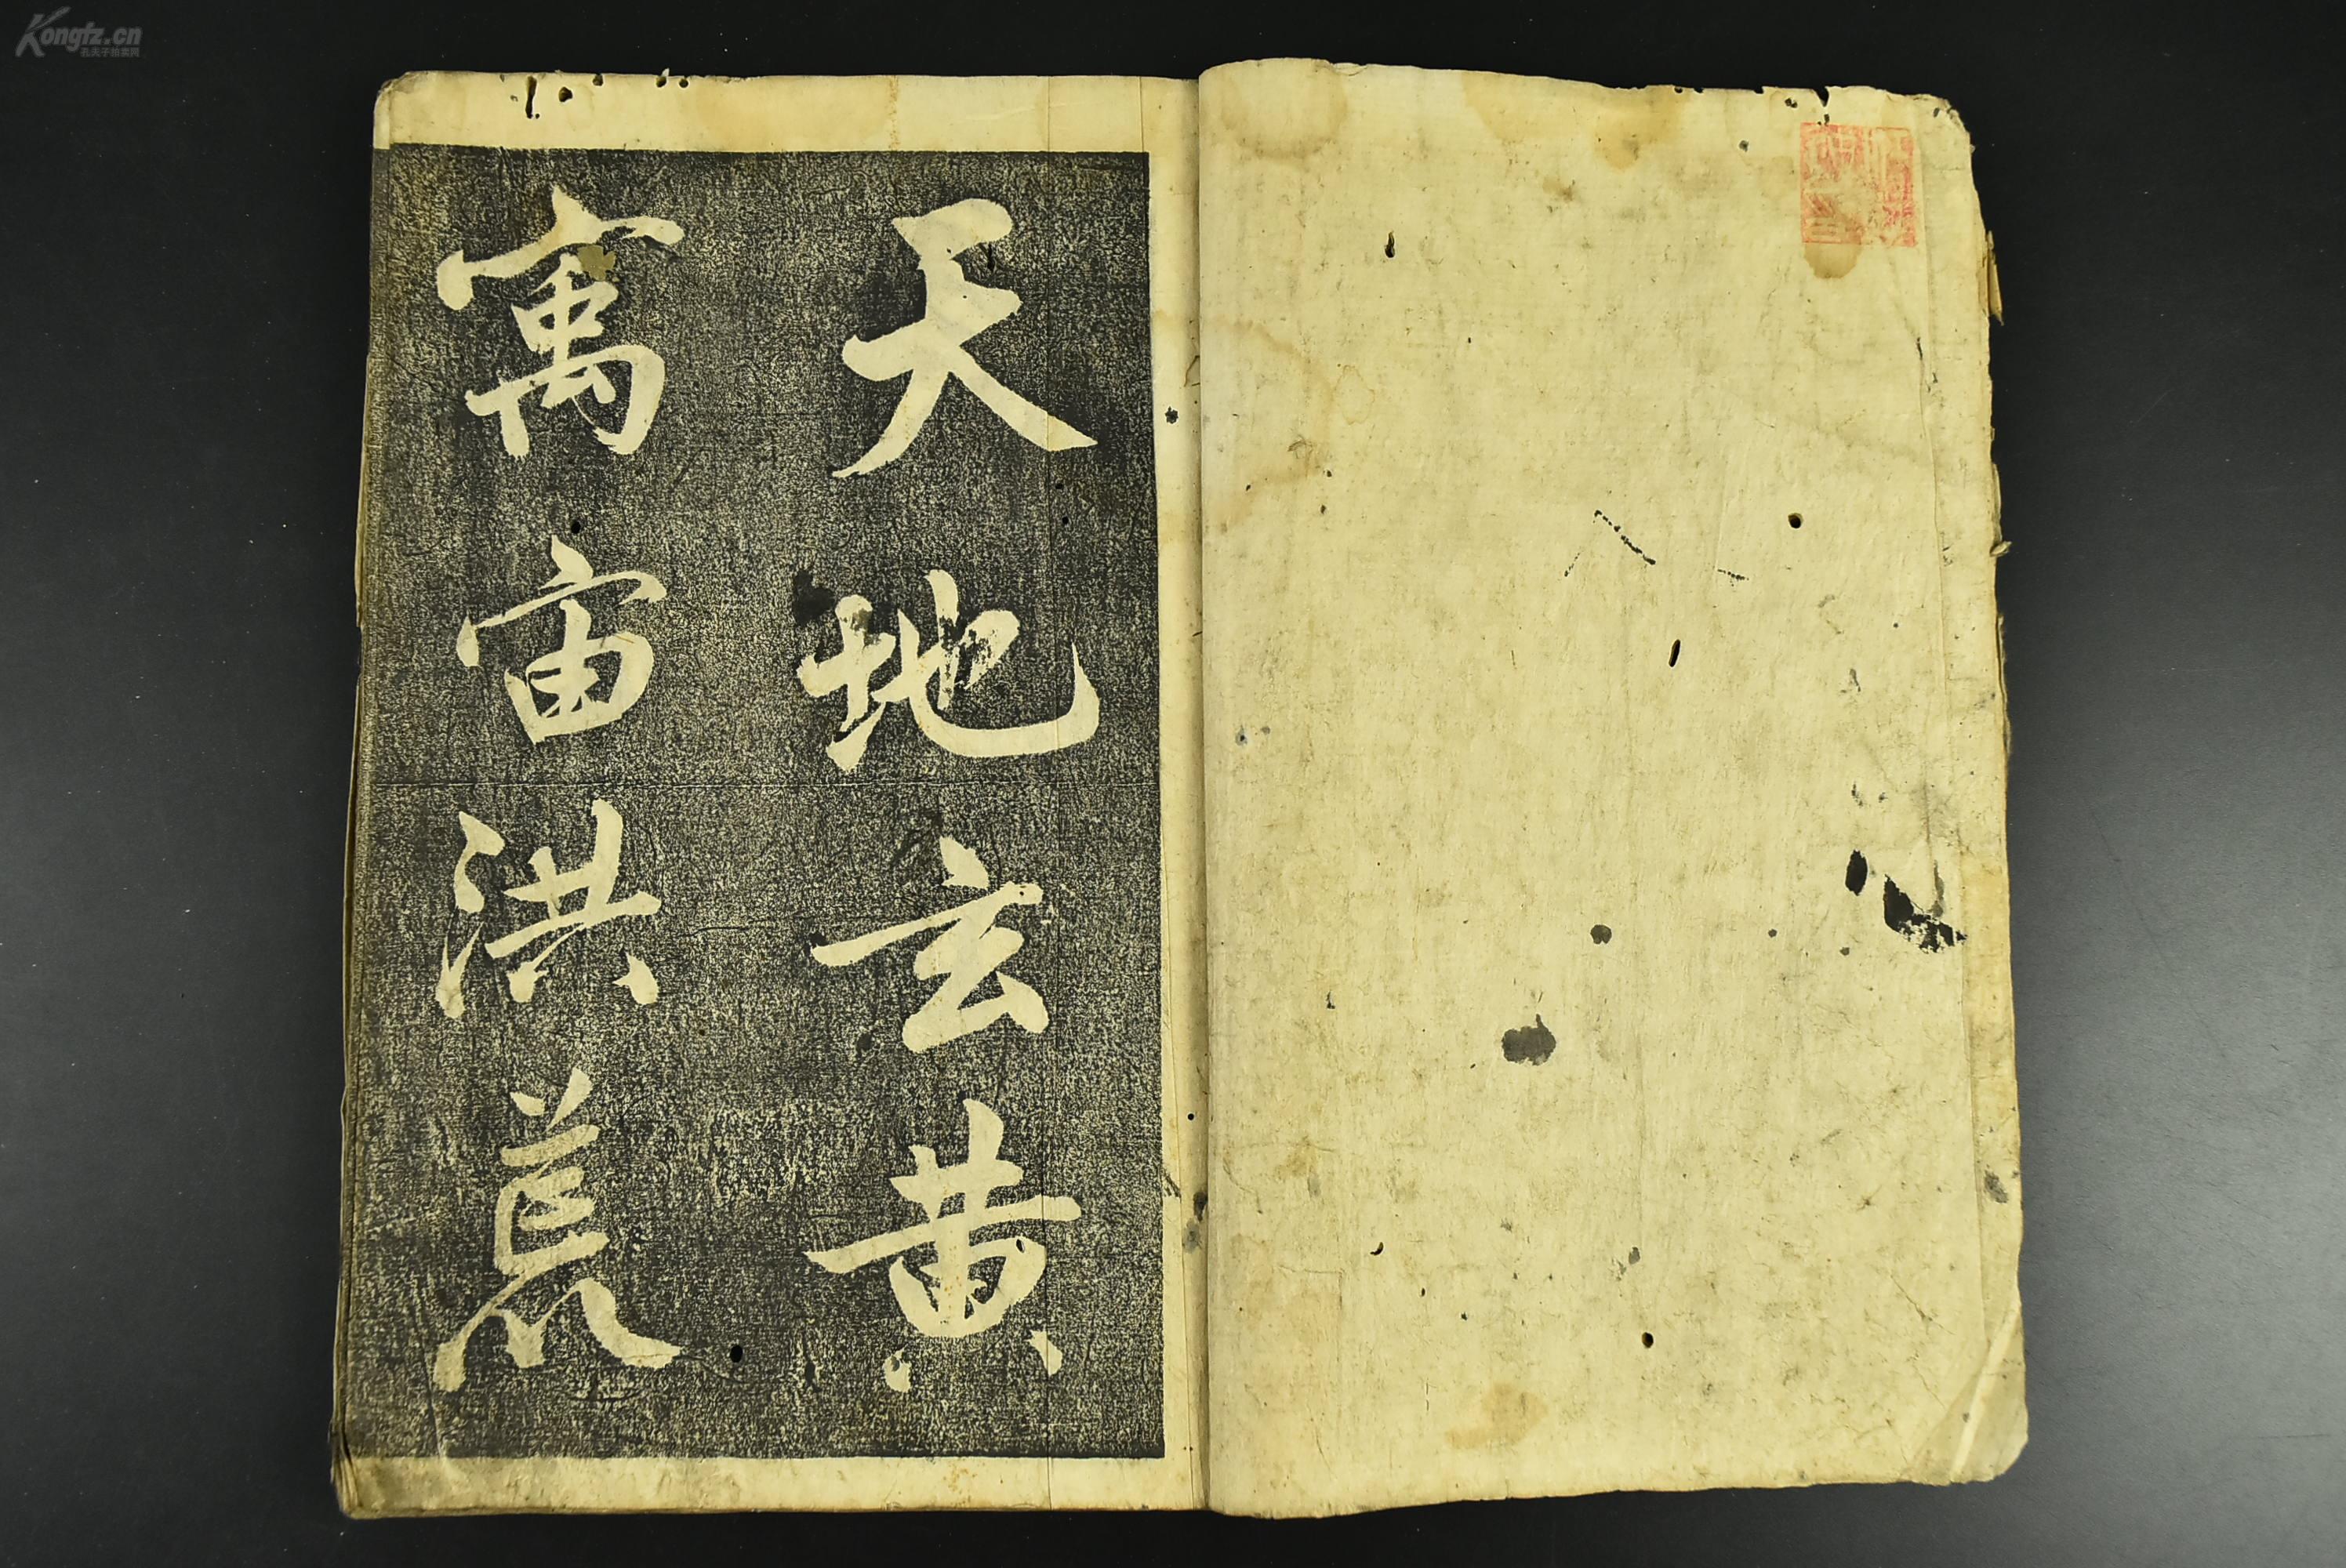 天地玄黃
寓宙洪荒
Kongfz.cn
孔夫子拍卖网